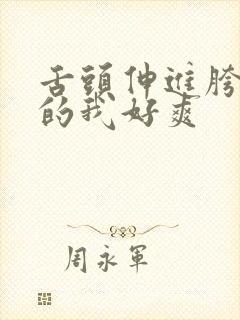 舌頭伸進胯
的我好爽
周永軍